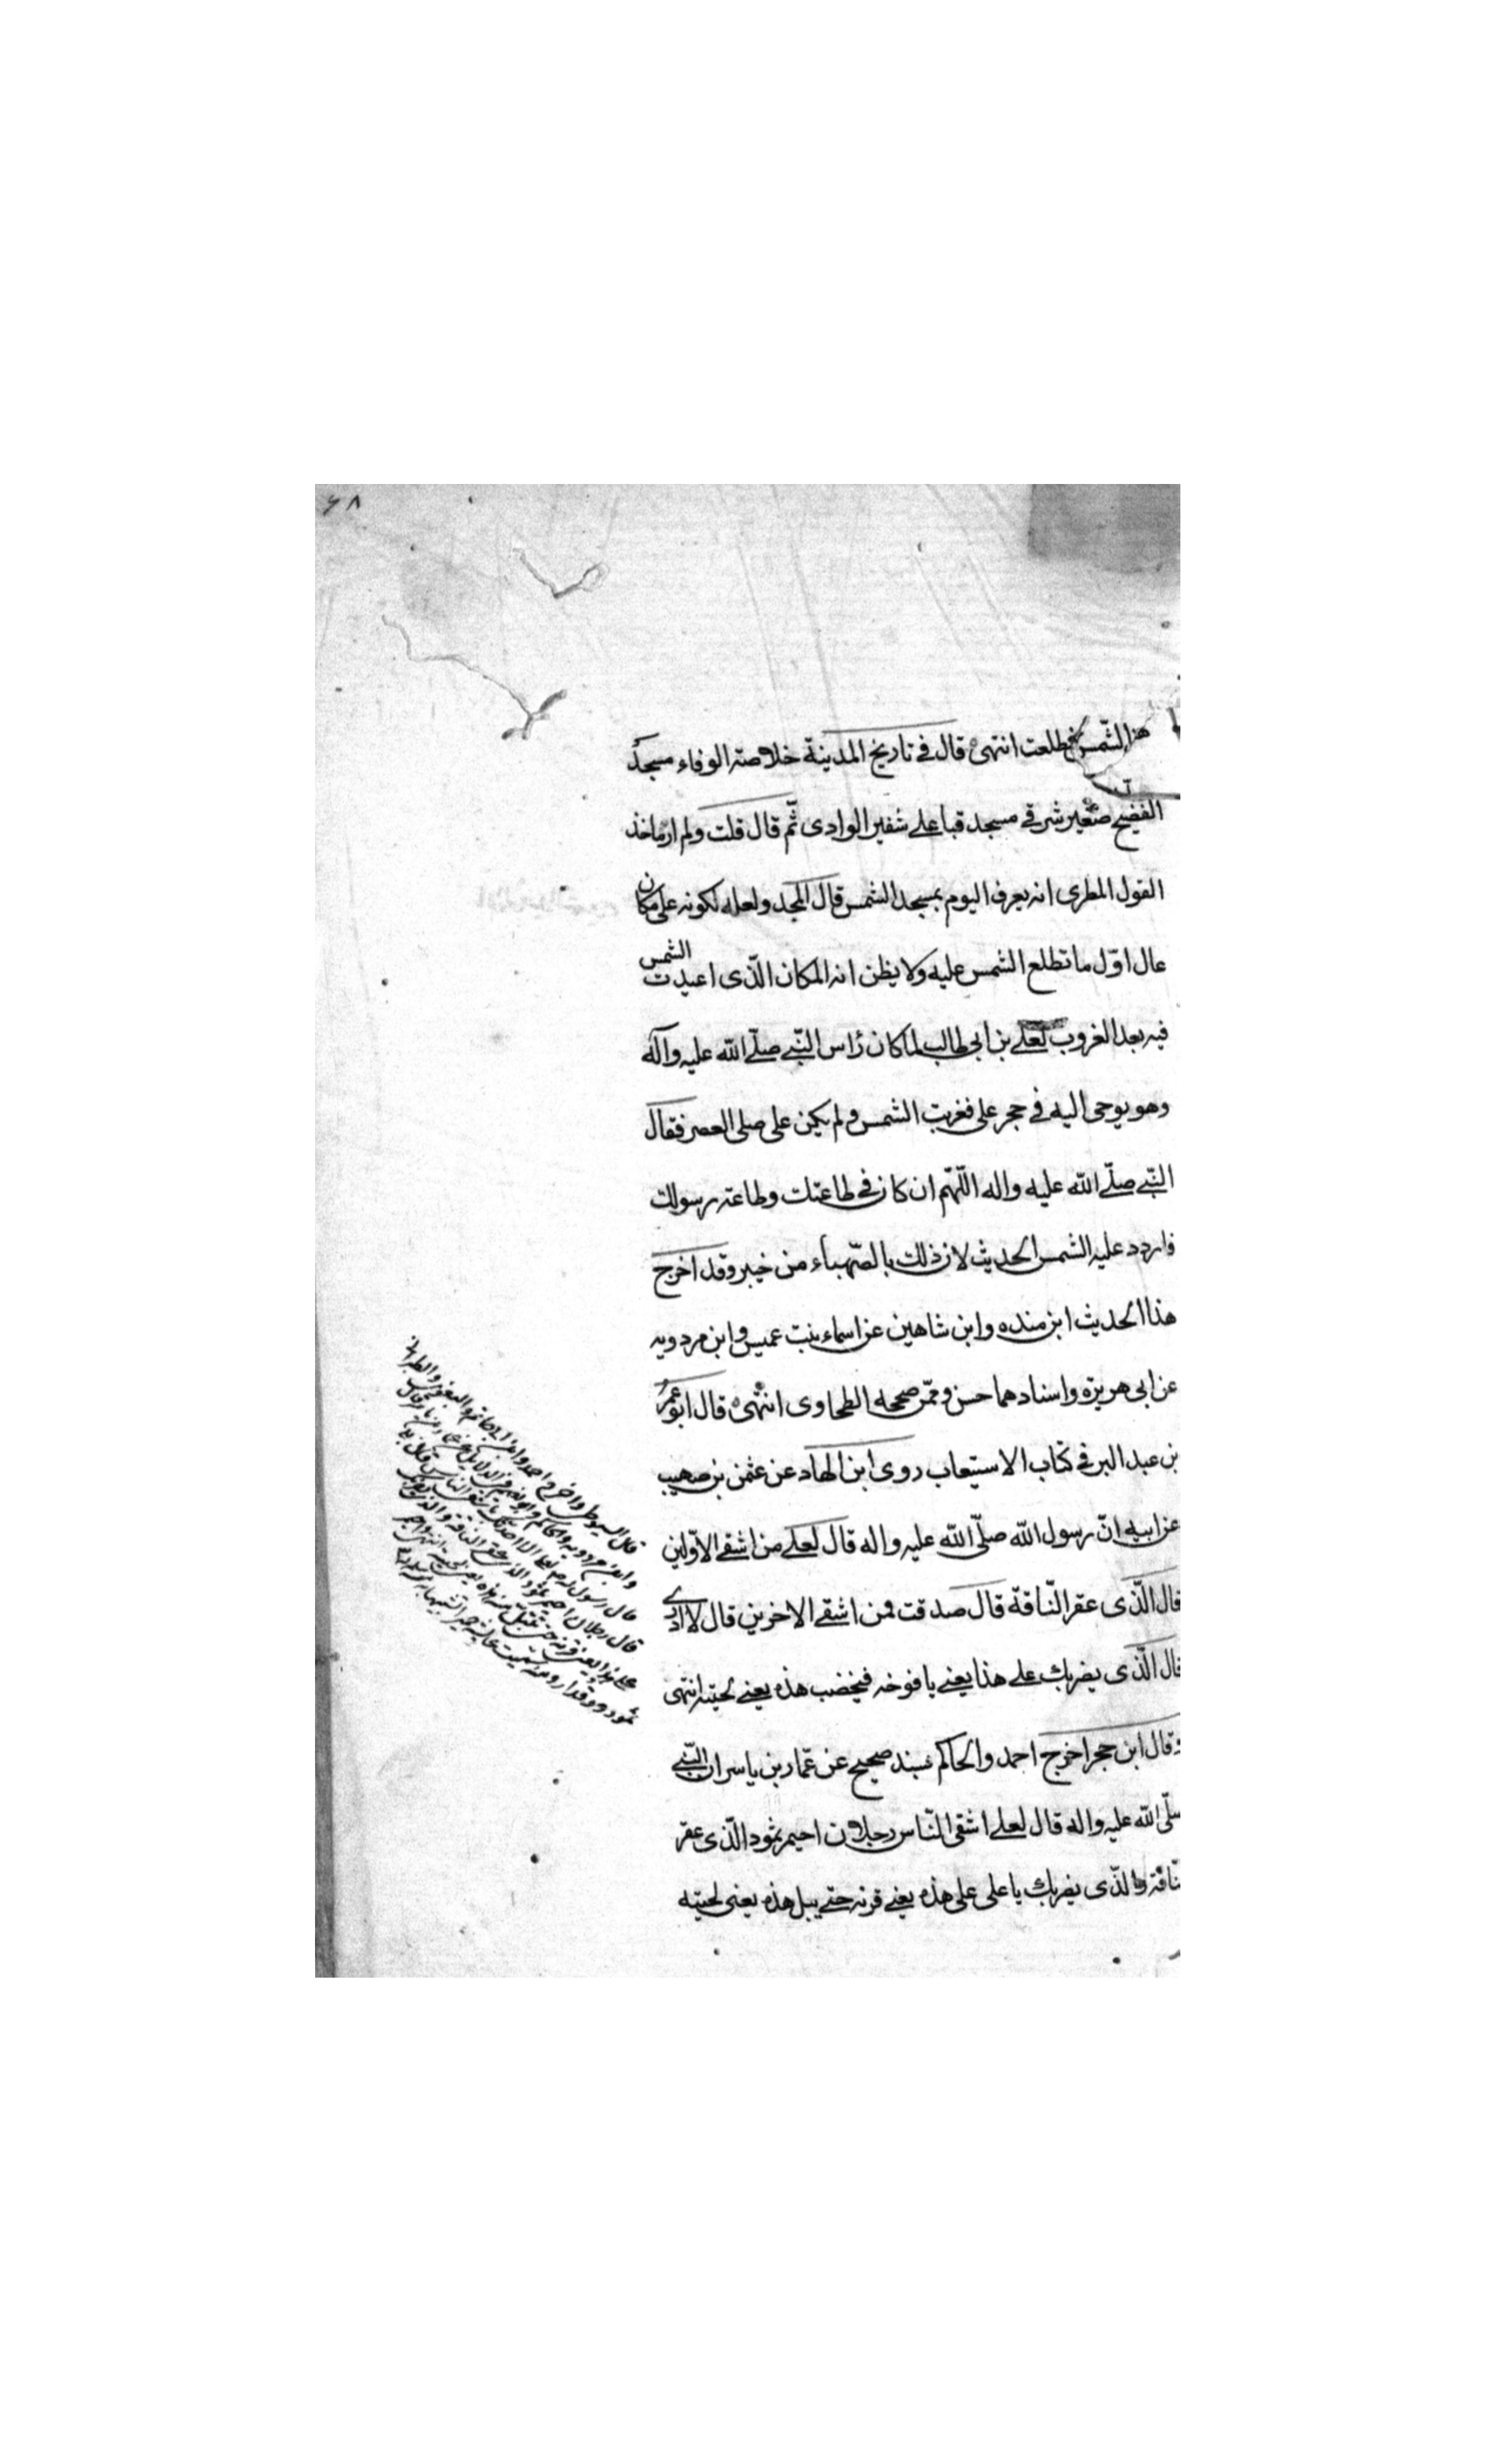 ٦٨
هذا الشمس فطلعت انتهى قال في تاريخ المدينة خلاصة الوفاء مسجد
الفضيخ صغير شرقي مسجد قبا على شفير الوادى ثم قال قلت ولم ار ماخذ
القول المطرى انه يعرف اليوم بمسجد الشمس قال المجد ولعله لكونه على مكان
عال اوّل ما تطلع الشمس عليه ولا يظن انه المكان الّذى اعيدت الشمس
فيه بعد الغروب لعلى بن ابى طالب لما كان رأس النّبى صلّى الله عليه وآله
وهو يوحى اليه في حجر على فغربت الشمس ولم يكن على صلى العصر فقال
النّبى صلّى الله عليه واله اللّهمّ ان كان في طاعتك وطاعة رسولك
فاردد عليه الشمس الحديث لان ذلك بالصّهباء من خيبر وقد اخرج
هذا الحديث ابن منده وابن شاهين عن اسماء بنت عميس وابن مردويه
عن ابى هريرة واسنادهما حسن وممّن صححه الطحاوى انتهى قال ابو عمر
بن عبد البر في كتاب الاستيعاب روى ابن الهاد عن عثمن بن صهيب
عن ابيه انّ رسول الله صلّى الله عليه واله قال لعلى من اشقى الاوّلين
قال الّذى عقر النّاقة قال صدقت فمن اشقى الاخرين قال لا ادرى
قال الّذى يضربك على هذا يعنى يافوخه فيخضب هذه يعنى لحيته انتهى
وقال ابن حجر اخرج احمد والحاكم بسند صحيح عن عمّار بن ياسر ان النّبى
صلّى الله عليه واله قال لعلى اشقى النّاس رجلان احيمر ثمود الّذى عقر
النّاقة والّذى يضربك يا على على هذه يعنى قرنه حتى يبل هذه يعنى لحيته
قال السيوطى واخرج احمد وابن ابى حاتم والبغوى والطبرانى
وابن مردويه والحاكم وابو نعيم في الدلايل عن عمار بن ياسر قال
قال رسول الله لعلى الا احدثك باشقى الناس قال بلى
قال رجلان احيمر ثمود الذى عقر الناقة والذى يضربك
على هذا يعنى قرنه حتى تبتل منه هذه يعنى لحيته